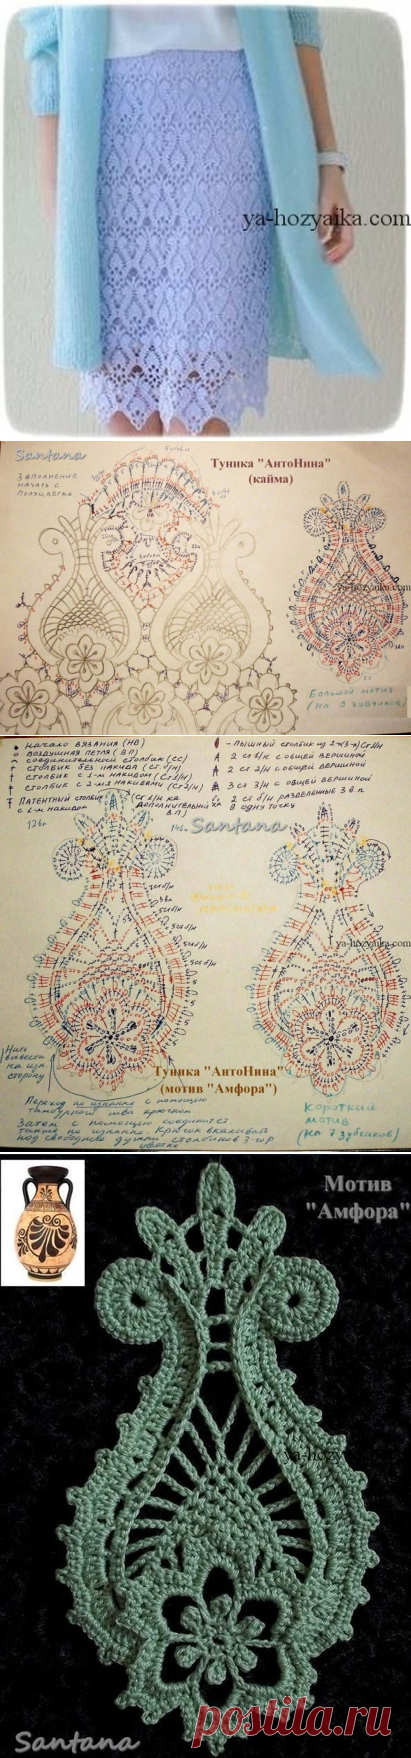 ya-hozyaika.com
Santana
Туника "АнтоНина"
(кайма)
ЗАПОЛНЕНИЕ
НАЧАТЬ С
ПОЛУЦВЕТКА
ya-hozyaika.com
БОЛЬШОЙ МОТИВ
(НА 9 ЗУБЧИКОВ)
НАЧАЛО ВЯЗАНИЯ (НВ)
ВОЗДУШНАЯ ПЕТЛЯ (ВП)
СОЕДИНИТЕЛЬНЫЙ СТОЛБИК (СС)
СТОЛБИК БЕЗ НАКИДА (СТ б/н)
СТОЛБИК С 1-М НАКИДОМ (СТ 1/Н)
СТОЛБИК С 2-МЯ НАКИДАМИ (СТ 2/Н)
ПАТЕНТНЫЙ СТОЛБИК
С 1-М НАКИДОМ
(СТ 1/Н НА ДОПОЛНИТЕЛЬНОЙ ВП)
- ПЫШНЫЙ СТОЛБИК ИЗ 2-х(3-х) СТ 1/Н
2 СТ б/Н С ОБЩЕЙ ВЕРШИНОЙ
2 СТ 2/Н С ОБЩЕЙ ВЕРШИНОЙ
3 СТ 3/Н С ОБЩЕЙ ВЕРШИНОЙ
2 СТ б/Н РАЗДЕЛЕННЫЕ 3 ВП
В ОДНУ ТОЧКУ
126п
Santana
ya-hozyaika.com
Нить
вывести
на изн.
сторону
Туника "АнтоНина"
(мотив "Амфора")
Переход по изнанке с помощью
тамбурного шва крючком
Затем с помощью соединит. ст
также по изнанке. Крючок вкалывать
под свободные дужки столбиков 3-го р.
цветка
КОРОТКИЙ
МОТИВ
(НА 7 ЗУБЧИКОВ)
Мотив
"Амфора"
ya-hozy
Santana
postila.ru